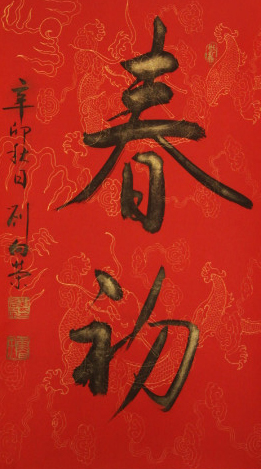 春初
辛卯秋日 刘